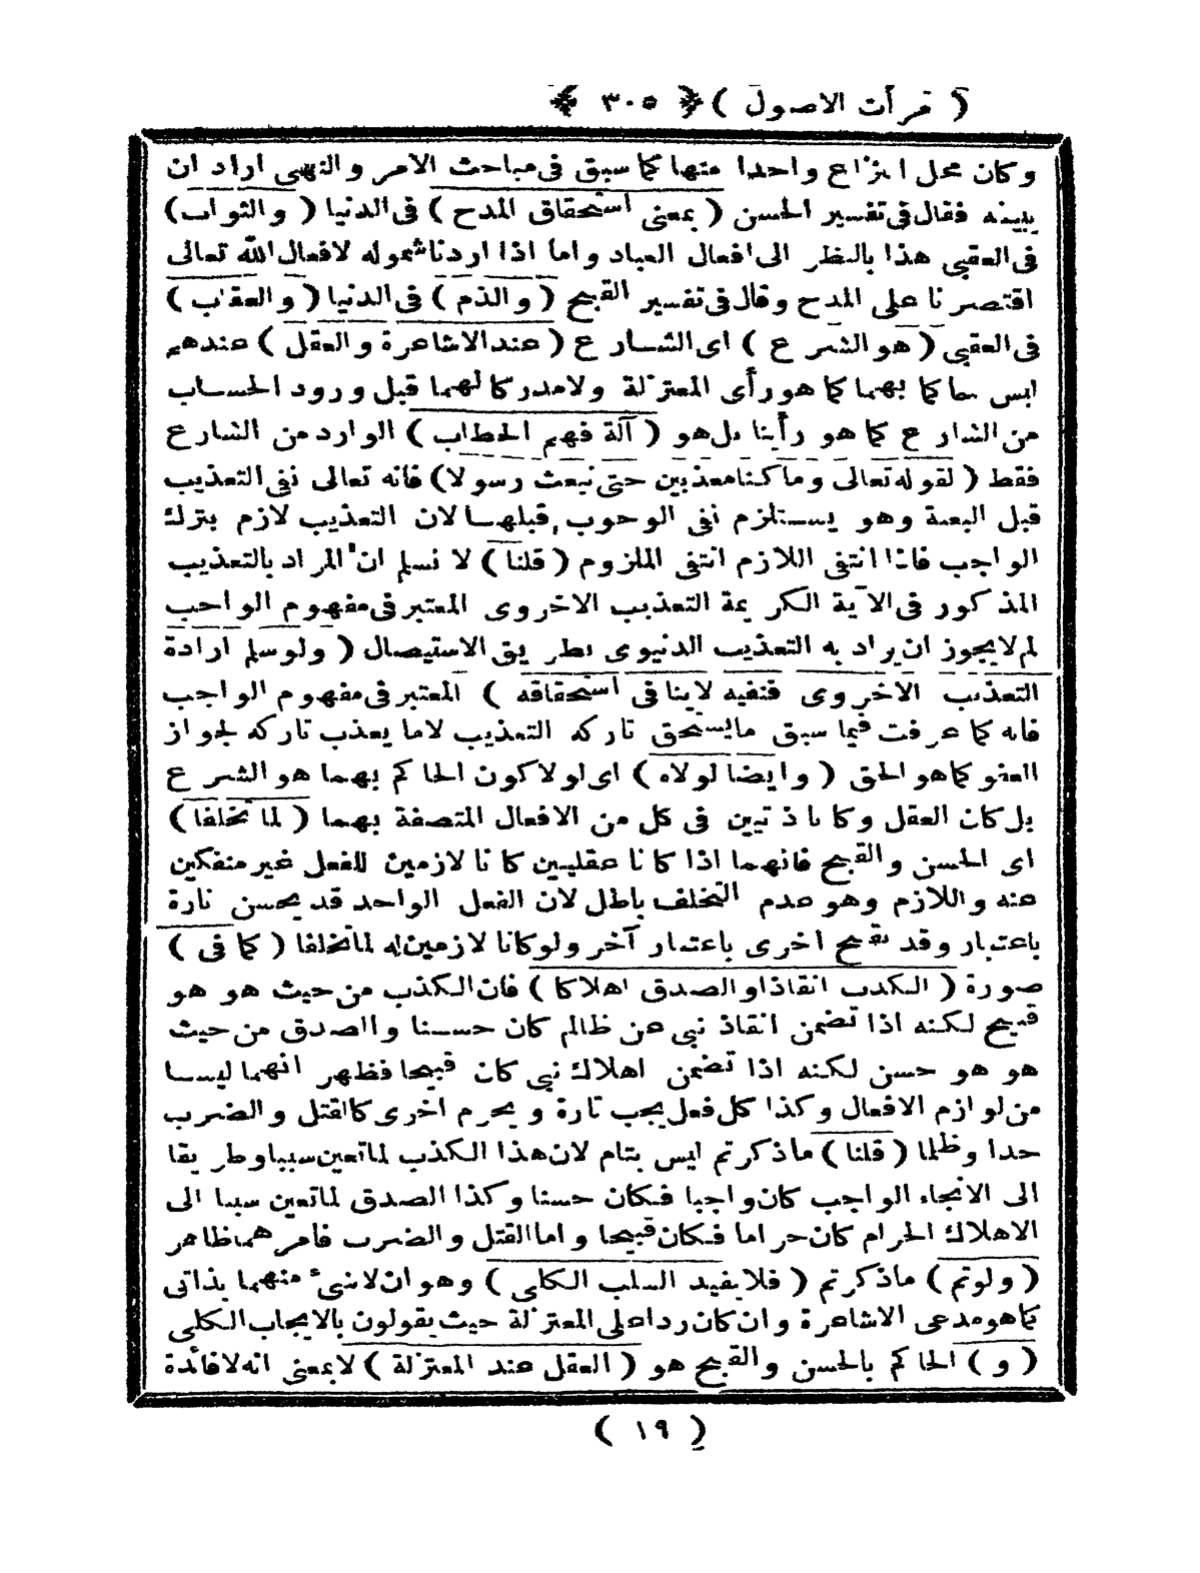 ( مرأت الاصول ) ﴿ ٣٠٥ ﴾
وكان محل النزاع واحدا منها كما سبق فى مباحث الامر والنهى اراد ان
يبينه فقال فى تفسير الحسن ( بمعنى استحقاق المدح ) فى الدنيا ( والثواب )
فى العقبى هذا بالنظر الى افعال العباد واما اذا اردنا شموله لافعال الله تعالى
اقتصرنا على المدح وقال فى تفسير القبح ( والذم ) فى الدنيا ( والعقاب )
فى العقبى ( هو الشرع ) اى الشارع ( عند الاشاعرة والعقل ) عندهم
ليس حاكما بهما كما هو رأى المعتزلة ولا مدركا لهما قبل ورود الحساب
من الشارع كما هو رأينا بل هو ( آلة فهم الخطاب ) الوارد من الشارع
فقط ( لقوله تعالى وما كنا معذبين حتى نبعث رسولا ) فانه تعالى نفى التعذيب
قبل البعثة وهو يستلزم نفى الوجوب قبلها لان التعذيب لازم بترك
الواجب فاذا انتفى اللازم انتفى الملزوم ( قلنا ) لا نسلم ان المراد بالتعذيب
المذكور فى الآية الكريمة التعذيب الاخروى المعتبر فى مفهوم الواجب
لم لا يجوز ان يراد به التعذيب الدنيوى بطريق الاستيصال ( ولو سلم ارادة
التعذيب الاخروى فنفيه لا ينافى استحقاقه ) المعتبر فى مفهوم الواجب
فانه كما عرفت فيما سبق مايستحق تاركه التعذيب لا ما يعذب تاركه لجواز
العفو كما هو الحق ( وايضا لولاه ) اى لولا كون الحاكم بهما هو الشرع
بل كان العقل وكانا ذاتيين فى كل من الافعال المتصفة بهما ( لما تخلفا )
اى الحسن والقبح فانهما اذا كانا عقليين كانا لازمين للفعل غير منفكين
عنه واللازم وهو عدم التخلف باطل لان الفعل الواحد قد يحسن تارة
باعتبار وقد يقبح اخرى باعتبار آخر ولو كانا لازمين له لما تخلفا ( كما فى )
صورة ( الكذب انقاذا والصدق اهلاكا ) فان الكذب من حيث هو هو
قبيح لكنه اذا تضمن انقاذ نبى عن ظالم كان حسنا والصدق من حيث
هو هو حسن لكنه اذا تضمن اهلاك نبى كان قبيحا فظهر انهما ليسا
من لوازم الافعال وكذا كل فعل يجب تارة ويحرم اخرى كالقتل والضرب
حدا وظلما ( قلنا ) ماذكرتم ليس بتام لان هذا الكذب لما تعين سببا وطريقا
الى الانجاء الواجب كان واجبا فكان حسنا وكذا الصدق لما تعين سببا الى
الاهلاك الحرام كان حراما فكان قبيحا واما القتل والضرب فامرهما ظاهر
( ولوتم ) ماذكرتم ( فلا يفيد السلب الكلى ) وهو ان لا شىء منهما بذاتى
كما هو مدعى الاشاعرة وان كان ردا على المعتزلة حيث يقولون بالايجاب الكلى
( و ) الحاكم بالحسن والقبح هو ( العقل عند المعتزلة ) لا بمعنى انه لا فائدة
( ١٩ )